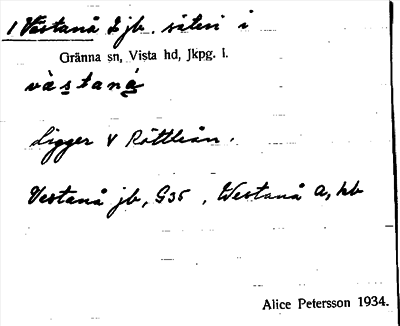 1 Västanå 2 jb, säteri i
Gränna sn, Vista hd, Jkpg. l.
västaná
Ligger V Röttleån.
Vestanå jb, G35, Westanå A, kb
Alice Petersson 1934.